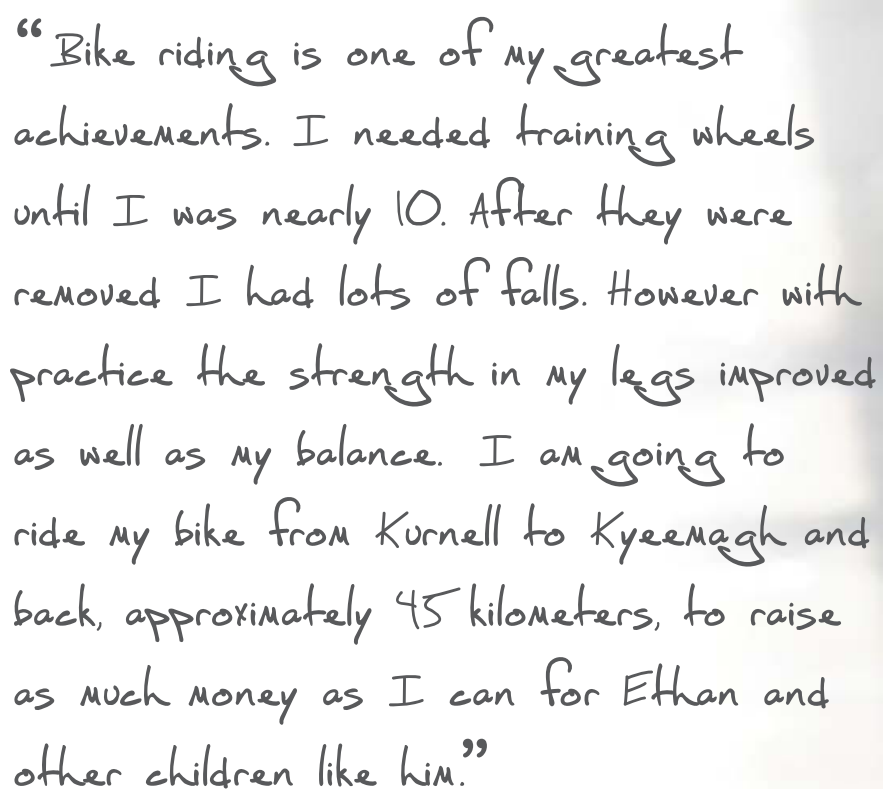 “Bike riding is one of my greatest
achievements. I needed training wheels
until I was nearly 10. After they were
removed I had lots of falls. However with
practice the strength in my legs improved
as well as my balance. I am going to
ride my bike from Kurnell to Kyeemagh and
back, approximately 45 kilometers, to raise
as much money as I can for Ethan and
other children like him.”